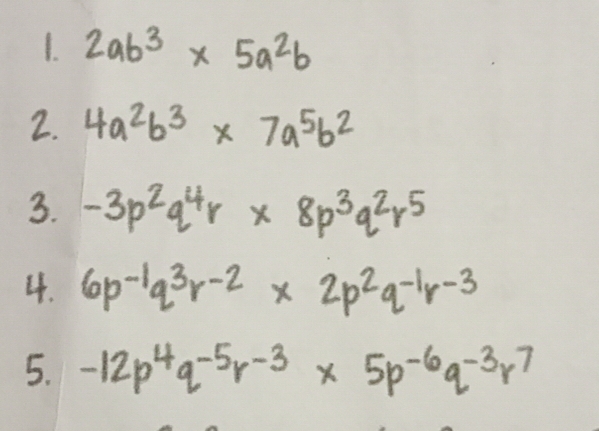 1. 2ab³ × 5a²b
2. 4a²b³ × 7a⁵b²
3. -3p²q⁴r × 8p³q²r⁵
4. 6p⁻¹q³r⁻² × 2p²q⁻¹r⁻³
5. -12p⁴q⁻⁵r⁻³ × 5p⁻⁶q⁻³r⁷